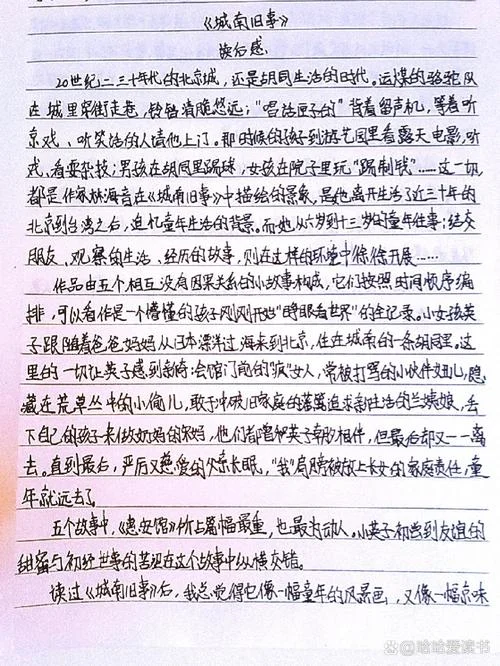 《城南旧事》
读后感
20世纪二三十年代的北京城，还是胡同生活的时代。运煤的骆驼队
在城里穿街走巷，铃铛清脆悠远；“唱话匣子的”背着留声机，等着听
京戏、听笑话的人请他上门。那时候的孩子到游艺园里看露天电影，听
戏、看耍杂技；男孩在胡同里踢球，女孩在院子里玩“踢制钱”……这一切
都是作家林海音在《城南旧事》中描绘的景象，是他离开生活了近三十年的
北京到台湾之后，追忆童年生活的背景。而她从六岁到十三岁的童年往事：结交
朋友、观察的生活、经历的故事，则在这样的环境中徐徐开展……
作品由五个相互没有因果关系的小故事构成，它们按照时间秩序编
排，可以看作是一个懵懂的孩子刚刚开始“睁眼看世界”的全记录。小女孩英
子跟随着爸爸妈妈从日本漂洋过海来到北京，住在城南的一条胡同里。这
里的一切让英子感到新奇：会馆门前的“疯”女人，常被打骂的小伙伴妞儿，隐
藏在荒草丛中的小偷儿，敢于冲破旧家庭的藩篱追求新生活的兰姨娘，丢
下自己的孩子来做奶妈的宋妈，他们都曾和英子朝夕相伴，但最后却又一一离
去。直到最后，严厉又慈爱的父亲长眠，“我”肩膀被放上长女的家庭责任，童
年就远去了
五个故事中，《惠安馆》所占篇幅最重，也最为动人。小英子初尝到友谊的
甜蜜与初经世事的苦涩在这个故事中纵横交错。
读过《城南旧事》后，我总觉得它像一幅童年的风景画，又像一幅京味
哈哈爱读书